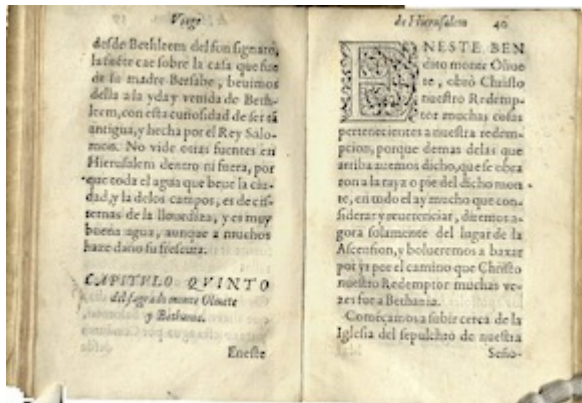 Viage
desde Bethleem del fonsignato,
la fuente cae sobre la casa que fue
de la madre Bersabe, beuimos
della a la yda y venida de Beth-
leem, con esta curiosidad de ser tã
antigua, y hecha por el Rey Salo-
mon. No vide estas fuentes en
Hierusalem dentro ni fuera, por
que toda el agua que beue la ciu-
dad, y la de los campos, es de cis-
ternas de la llouediza, y es muy
buena agua, aunque a muchos
haze daño su frescura.
CAPITVLO QVINTO
del sagrado monte Oliuete
y Bethania.
Eneste
de Hierusalem 40
ENESTE BEN
dito monte Oliue
te, obrò Christo
nuestro Redemp-
tor muchas cosas
pertenecientes a nuestra redemp-
cion, porque demas de las que
arriba auemos dicho, que se obra
ron a la raya o pie del dicho mon
te, en todo el ay mucho que con-
siderar y reuerenciar, diremos a-
gora solamente del lugar de la
Ascension, y bolueremos a baxar
por ya por el camino que Christo
nuestro Redemptor muchas ve-
zes fue a Bethania.
Començamos a subir cerca de la
Iglesia del sepulchro de nuestra
Seño-